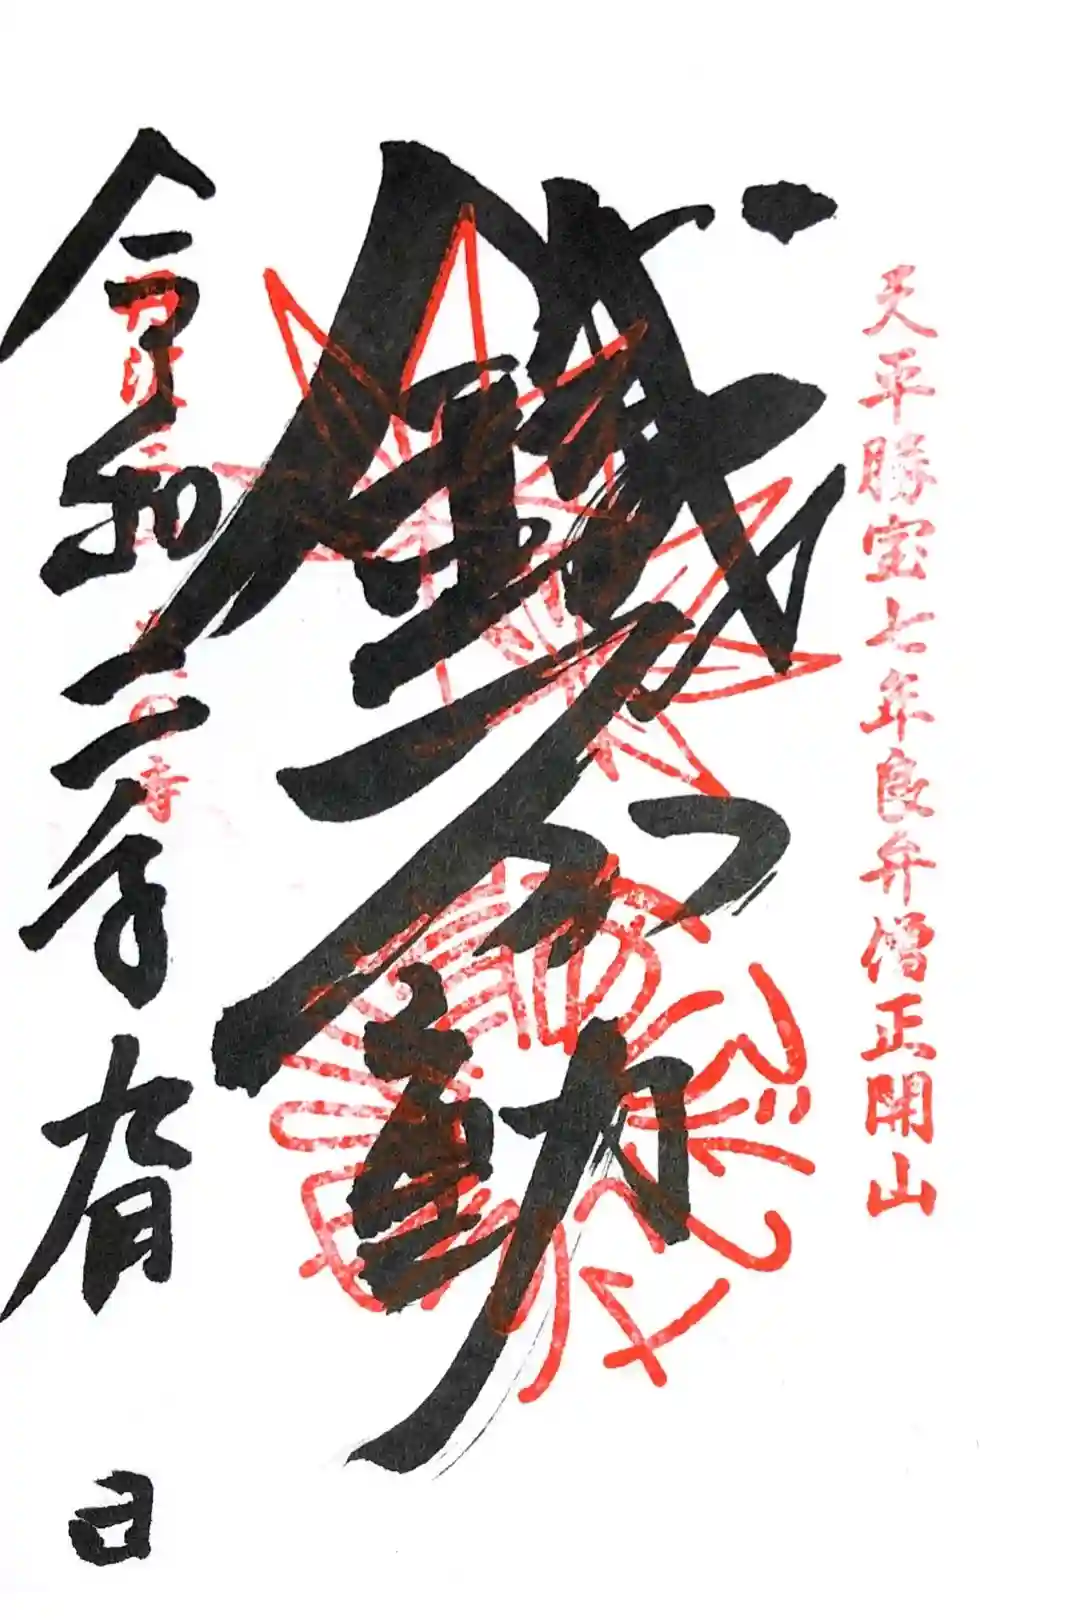 天平勝宝七年良弁僧正開山
鐵不動
令和二年九月 日